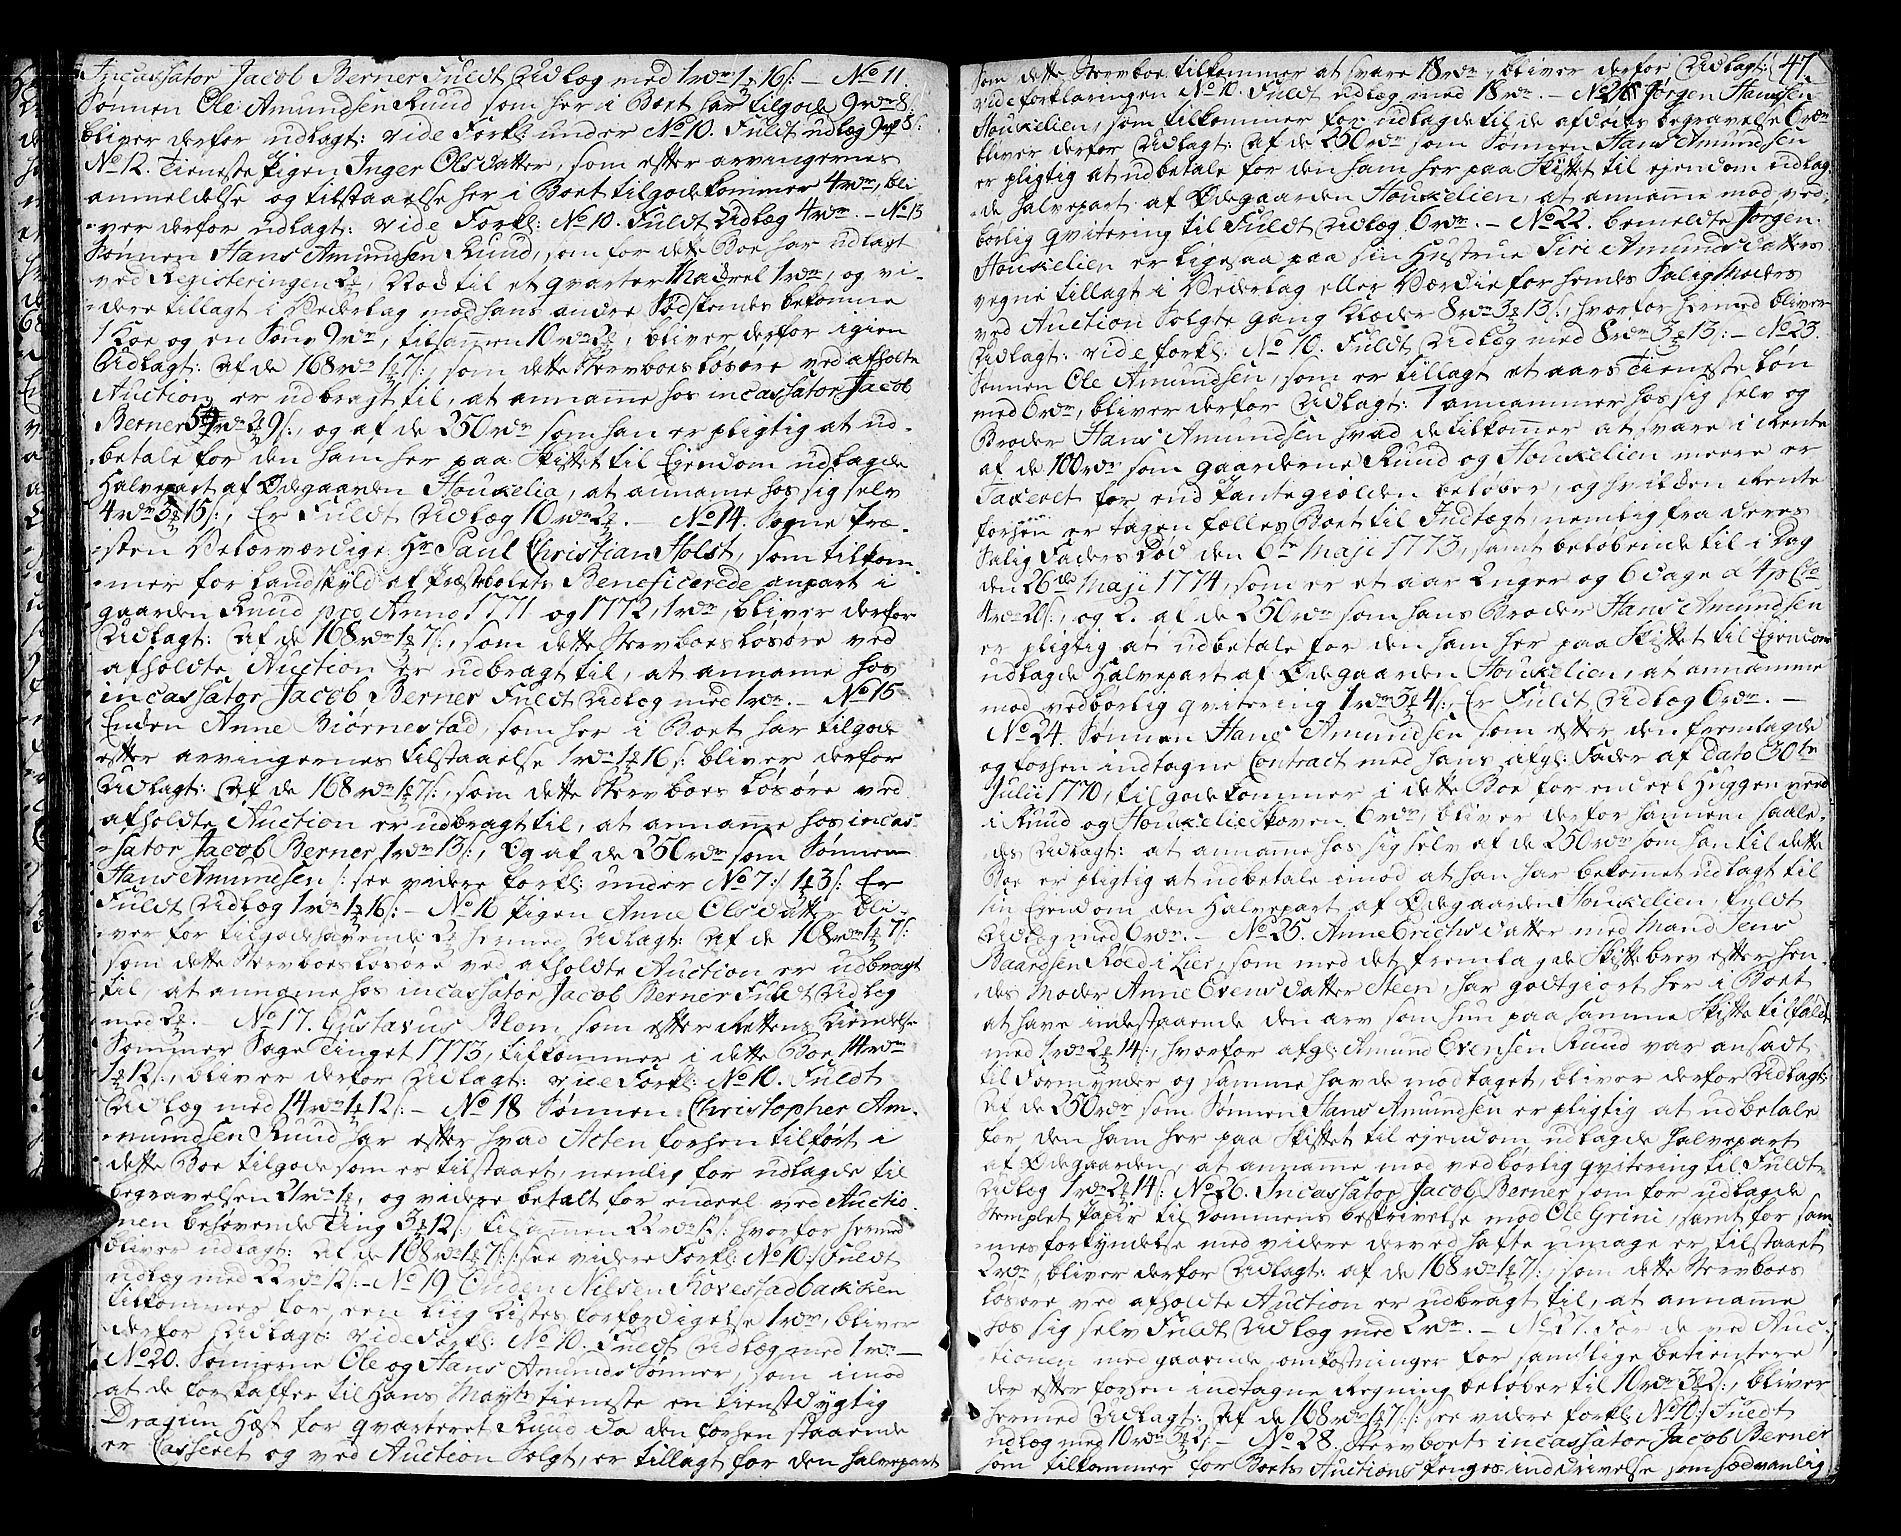 Incassator Jacob Berner Fuldt Udlæg med 1 rdr 1 ₰ 16 s: — No 11
Sønnen Ole Amundsen Ruud som her i Boet har tilgode 9 rdr 8 s:
bliver derfor udlagt: vide Forkl: under No 10. Fuldt udlæg 9 rdr 8 s:
No 12. Tieneste Pigen Inger Olsdatter, som efter arvingernes
anmeldelse og tilstaaelse her i Boet tilgodekommer 4 rdr, bli-
ver derfor udlagt: vide Forkl: No 10. Fuldt Udlæg 4 rdr. — No 13
Sønnen Hans Amundsen Ruud, som for dette Boe har udlagt
ved Registeringen 2 ₰, Vod til et qvarter 1 rdr, og vi-
dere tillagt i Vederlag mod hans andre Sødskendes bekomne
1 Koe og en Soue 9 rdr, tilsammen 10 rdr 2 ₰, bliver derfor igien
Udlagt: Af de 168 rdr 1 ₰ 7 s:, som dette Sterwboes Løsøre ved afholte
Auction er udbragt til, at annamme hos incassator Jacob
Berner 5 rdr 2 ₰ 9 s:, og af de 250 rdr som han er pligtig at ud-
betale for den ham her paa Skiftet til Ejendom udlagde
Halvepart af Ødegaarden Houkelia, at annamme hos sig selv
4 rdr 3 ₰ 15 s:, Er Fuldt Udlæg 10 rdr 2 ₰. — No 14. Sogne Præ-
sten Velærværdige Hr Paul Christian Holst, som tilkom-
mer for Landskyld af Præstebolets Beneficerede anpart i
gaarden Ruud pro Anno 1771 og 1772, 1 rdr, bliver derfor
Udlagt: Af de 168 rdr 1 ₰ 7 s:, som dette Sterwboes Løsøre ved
afholdte Auction er udbragt til, at annamme hos
incassator Jacob Berner Fuldt Udlæg med 1 rdr. — No 15
Enken Anne Biørnestad, som her i Boet har tilgode
efter arvingernes tilstaaelse 1 rdr 1 ₰ 16 s: bliver derfor
Udlagt: Af de 168 rdr 1 ₰ 7 s:, som dette Sterwboes Løsøre ved
afholdte Auction er udbragt til, at annamme hos incas-
sator Jacob Berner 1 rdr 13 s:, Og af de 250 rdr som Sønnen
Hans Amundsen /: see videre forkl: under No 7:/ 1 ₰ 3 s: Er
Fuldt Udlæg 1 rdr 1 ₰ 16 s: — No 16 Pigen Anne Olsdatter bli-
ver for tilgodehavende 2 ₰ hermed Udlagt: Af de 168 rdr 1 ₰ 7 s:
som dette Sterwboes Løsøre ved afholdte Auction er udbragt
til, at annamme hos incassator Jacob Berner Fuldt Udlæg
med 2 ₰. — No 17. Gustavus Blom, som efter Rettens Kiendelse
Sommer Sage Tinget 1773, tilkommer i dette Boe 14 rdr
1 ₰ 12 s:, bliver derfor Udlagt: vide Forkl: No 10. Fuldt
Udlæg med 14 rdr 1 ₰ 12 s: — No 18 Sønnen Christopher Am-
mundsen Ruud har efter hvad Acten forhen tilført i
dette Boe tilgode som er tilstaaet, nemlig for udlagde til
begravelsen 21 rdr 1 ₰, og videre betalt for endeel ved Auctio-
nen behøvende Ting 3 ₰ 12 s:, tilsammen 22 rdr 12 s: hvorfor hermed
bliver udlagt: Af de 168 rdr 1 ₰ 7 s: /: see videre Forkl: No 10:/ Fuldt
udlæg med 22 rdr 12 s: — No 19 Nilsen Kovestadbakken
tilkommer for een Liig Kistes forfærdigelse 1 rdr, bliver
derfor Udlagt: vide Forkl: No 10. Fuldt Udlæg med 1 rdr. —
No 20. Sønnerne Ole og Hans Amunds Sønner, som imod
at de forskaffer til Hans Mayts tieneste en tienstdygtig
Dragun Hæst for qvarteret Ruud da den forhen staaende
er Casseret og ved Auction Solgt, er tillagt for den halvepart
47.
som dette Sterwboe tilkommer at svare 18 rdr, bliver derfor Udlagt:
vide forklaringen No 10. Fuldt udlæg med 18 rdr. — No 21 Jørgen Hansen
Houkelien, som tilkommer for udlagde til de afdødes begravelse 6 rdr
bliver derfor Udlagt: Af de 250 rdr som Sønnen Hans Amundsen
er pligtig at udbetale for den ham her paa Skiftet til ejendom udlag-
de halvepart af Ødegaarden Houkelien, at annamme mod ved-
børlig qvitering til Fuldt Udlæg 6 rdr. — No 22. bemeldte Jørgen
Houkelien er ligesaa paa sin Hustrue Siri Amunds datters
vegne tillagt i Vederlag eller Værdie for hendes Salig Moders
ved Auction Solgte gang Klæder 8 rdr 3 ₰ 13 s:, hvorfor hermed bliver
Udlagt: vide forkl: No 10. Fuldt Udlæg med 8 rdr 3 ₰ 13 s: — No 23.
Sønnen Ole Amundsen, som er tillagt et aars Tieneste Løn
med 6 rdr, bliver derfor Udlagt: 1 annammer hos sig selv og
Broder Hans Amundsen hvad de tilkommer at svare i Rente
af de 100 rdr som gaarderne Ruud og Houkelien meere er
Taxeret for end Pantegiælden beløber, og hvilken Rente
forhen er tagen fælles Boet til Indtægt, nemlig fra deres
Salig Faders Død den 6te Maji 1773, samt beløbende til i Dag
den 26de Maji 1774, som er et aar 2 uger og 6 dage a 4 p Cto
4 rdr 20 s:, og 2. af de 250 rdr som hans Broder Hans Amundsen
er pligtig at udbetale for den ham her paa Skiftet til Ejendom
udlagde Halvepart af Ødegaarden Houkelien, at annamme
mod vedbørlig qvitering 1 rdr 3 ₰ 4 s:, Er Fuldt Udlæg 6 rdr. —
No 24. Sønnen Hans Amundsen som efter den fremlagde
og forhen indtagne Contract med hans afgl: Fader af Dato 30te
Julii 1770, tilgodekommer i dette Boe for endeel Huggen
i Ruud og Houkelieskoven 6 rdr, bliver derfor hannem saale-
des Udlagt: at annamme hos sig selv af de 250 rdr som han til dette
Boe er pligtig at udbetale imod at han har bekomet udlagt til
sin Ejendom den Halvepart af Ødegaarden Houkelien, Fuldt
Udlæg med 6 rdr. — No 25. Anne Erichs datter med Mand Jens
Baardsen Røed i Lier, som med det fremlagde Skiftebrev efter hen-
des Moder Anne Evensdatter Steen, har godtgiort her i Boet
at have indestaaende den arv som hun paa samme Skifte tilfaldt
med 1 rdr 2 ₰ 14 s:, hvorfor afgl: Amund Evensen Ruud var ansadt
til Formynder og samme havde modtaget, bliver derfor Udlagt:
Af de 250 rdr som Sønnen Hans Amundsen er pligtig at udbetale
for den ham her paa Skiftet til ejendom udlagde halvepart
af Ødegaarden, at annamme mod vedbørlig qvitering til Fuldt
Udlæg 1 rdr 2 ₰ 14 s: No 26. Incassator Jacob Berner som for udlagde
Stemplet Papir til Dommens beskrivelse mod Ole Grini, samt for sam-
mes forkyndelse med videre derved hafte umage er tilstaaet
2 rdr, bliver derfor Udlagt: af de 168 rdr 1 ₰ 7 s:, som dette Sterwboes
Løsøre ved afholdte Auction er udbragt til, at annamme
hos sig selv Fuldt Udlæg med 2 rdr. — No 27. For de ved Auc-
tionen medgaaende omkostninger for samtlige betientere
der efter forhen indtagne Regning beløber til 10 rdr 3 ₰ 2 s:, bliver
hermed Udlagt: Af de 168 rdr 1 ₰ 7 s: /: see videre forkl: No 10:/ Fuldt
udlæg med 10 rdr 3 ₰ 2 s: — No 28. Sterwboets incassator Jacob Berner
som tilkommer for Boets Auctions Penges inddrivelse som sædvanlig